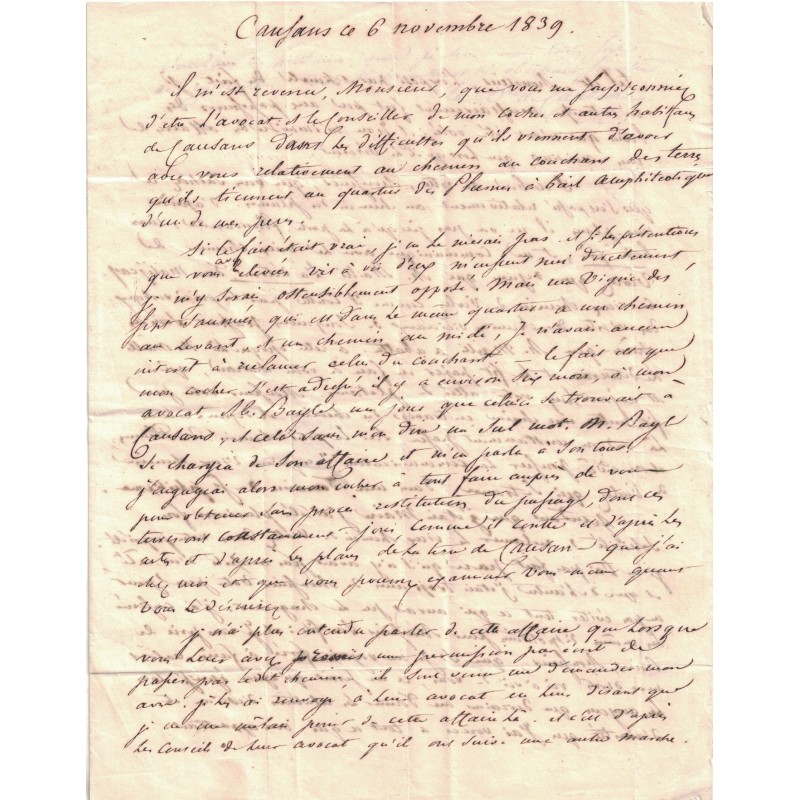 Causans ce 6 novembre 1839.
il m'est revenu, Monsieur, que vous me soupsconniez
d'etre l'avocat et le Conseiller de mon cocher et autres habitans
de Causans dans les difficultés qu'ils viennent d'avoir
avec vous relativement au chemin au couchans des terres
qu'ils tiennent au quartier des Plumes à bail amphiteotique
d'un de mes peres.
Si le fait était vrai, je ne le nierais pas. et si les prétentions
que vous avez elevées vis à vis d'eux m'eussent nui directement,
je m'y serais ostensiblement opposé. mais ma vigne des
sept saumées qui est dans le même quartier a un chemin
au levant, et un chemin au midi, je n'avais aucun
interet à réclamer celui du couchant. — le fait est que
mon cocher s'est adressé, il y a environ six mois, à mon
avocat M. Bayle un jour que celui ci se trouvait à
Causans, et cela sans m'en dire un seul mot. M. Bayle
se chargea de son affaire et m'en parla à son tour.
j'engageai alors mon cocher à tout faire auprès de vous
pour obtenir sans procès restitution du passage, dont ces
terres ont constamment joui comme il conste et d'après les
actes et d'après les plans de la terre de Causans que j'ai
chez moi et que vous pourrez examiner vous même quand
vous le désirerez.
je n'ai plus entendu parler de cette affaire que lorsque
vous leur avez permis une permission par écrit de
passer par le dit chemin, ils sont venus me demander mon
avis. je les ai renvoyé à leur avocat en leur disant que
je ne me mêlais point de cette affaire là. et c'est d'après
les Conseils de leur avocat qu'ils ont suivi une autre marche.